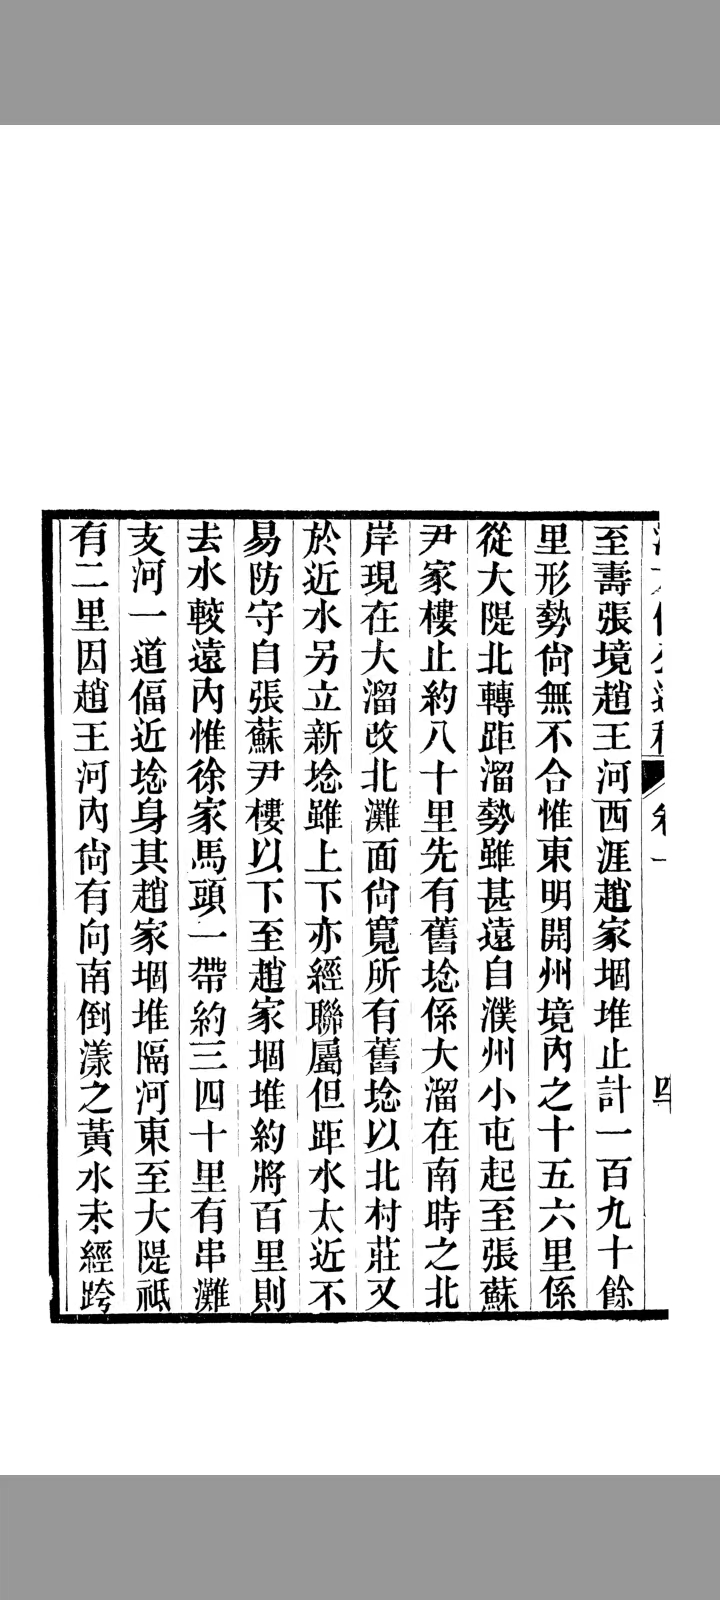 卷一
四
至壽張境趙王河西涯趙家堌堆止計一百九十餘
里形勢尙無不合惟東明開州境內之十五六里係
從大隄北轉距溜勢雖甚遠自濮州小屯起至張蘇
尹家樓止約八十里先有舊埝係大溜在南時之北
岸現在大溜改北灘面尙寬所有舊埝以北村莊又
於近水另立新埝雖上下亦經聯屬但距水太近不
易防守自張蘇尹樓以下至趙家堌堆約將百里則
去水較遠內惟徐家馬頭一帶約三四十里有串灘
支河一道偪近埝身其趙家堌堆隔河東至大隄祗
有二里因趙王河內尙有向南倒漾之黃水未經跨